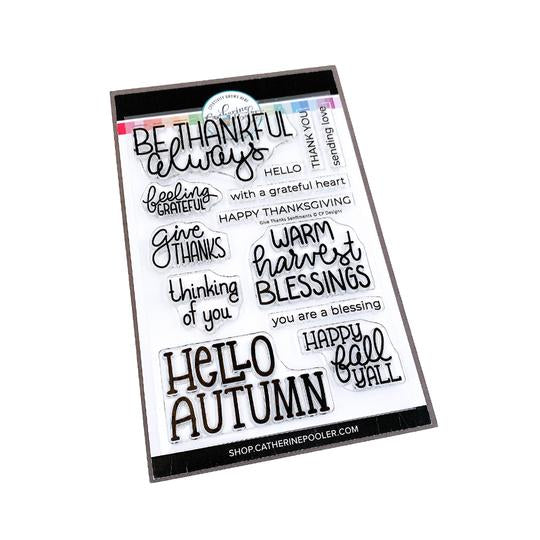 Catherine
BE THANKFUL
always
THANK YOU
sending love
HELLO
feeling
GRATEFUL
with a grateful heart
HAPPY THANKSGIVING
Give Thanks Sentiments © CP Designs
give
THANKS
WARM
harvest
BLESSINGS
thinking
of you
you are a blessing
HELLO
AUTUMN
HAPPY
fall
Y'ALL
SHOP.CATHERINEPOOLER.COM